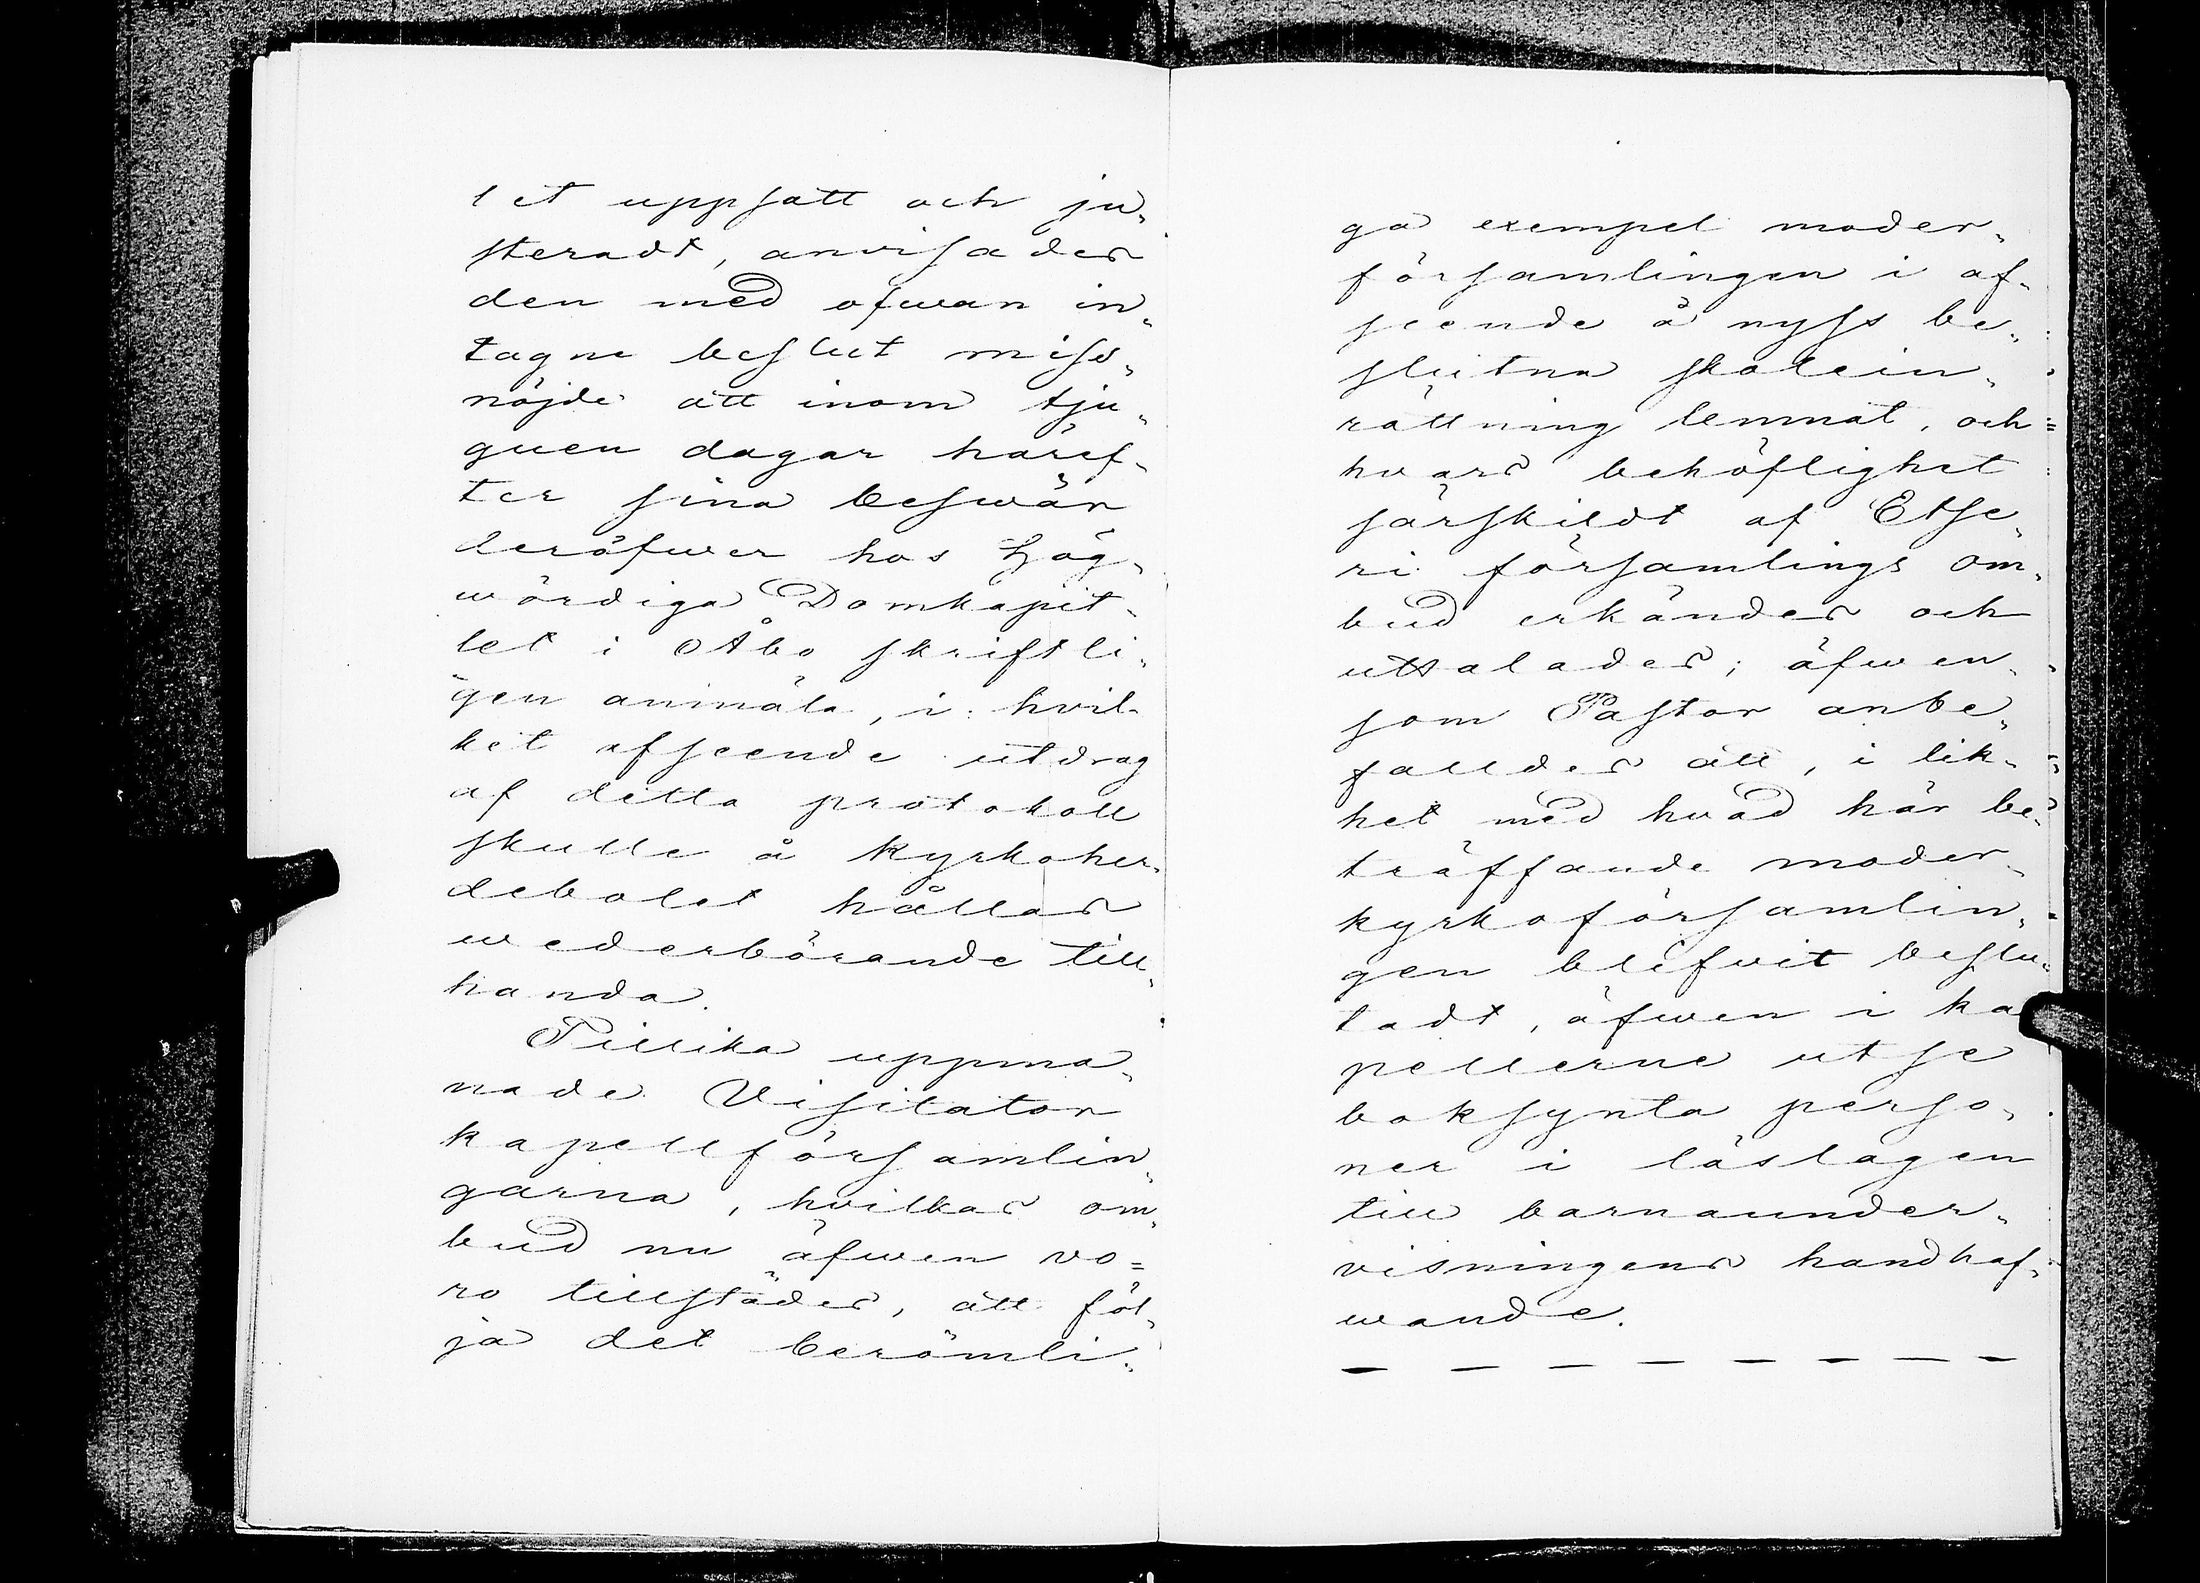 let uppsatt och ju„
steradt, anvisades
den med ofwan in„
tagne beslut miss„
nöjde att inom tju„
guen dagar häref„
ter sina beswär
deröfwer hos Hög„
wördiga Domkapit„
let i Åbo skriftli„
gen anmäla, i hvil„
ket afseende utdrag
af detta protokoll
skulle å Kyrkoher„
debolet hållas
wederbörande till„
handa.
Tillika uppma„
nade Visitator
kapellförsamlin„
garna, hvilkas om„
bud nu äfwen vo=
ro tillstädes, att föl„
ja det berömli„
ga exempel moder„
församlingen i af„
seende å nyss be„
slutna skolein„
rättning lemnat, och
hvars behöflighet
särskildt af Etse„
ri församlings om„
bud erkändes och
uttalades; äfwen„
som Pastor anbe„
falldes att, i lik„
het med hvad här be„
träffande moder„
kyrkoförsamlin„
gen blifvit beslu„
tadt, äfwen i ka
pellerne utse
boksynta perso„
ner i läslagen
till barnaunder„
visningens handhaf„
wande.
— — — — — — — —